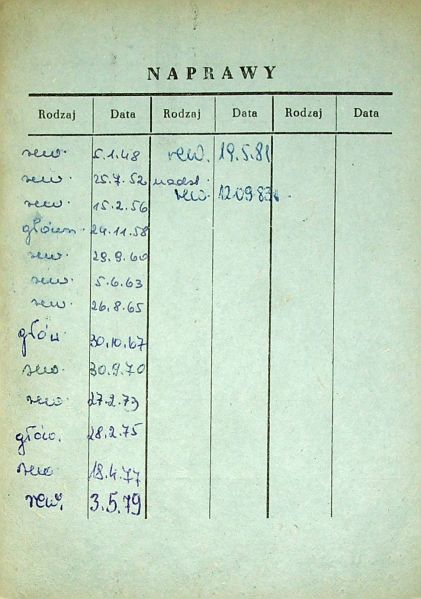 NAPRAWY
Rodzaj Data Rodzaj Data Rodzaj Data
rew. 5.1.48 rew. 19.5.81
rew. 25.7.52 nadzl.
rew. 12.09.83r.
rew. 15.2.56
główn. 24.11.58
rew. 29.9.60
rew. 5.6.63
rew. 26.8.65
główn 30.10.67
rew. 30.9.70
rew. 27.2.73
głów. 28.2.75
rew. 18.4.77
rew. 3.5.79